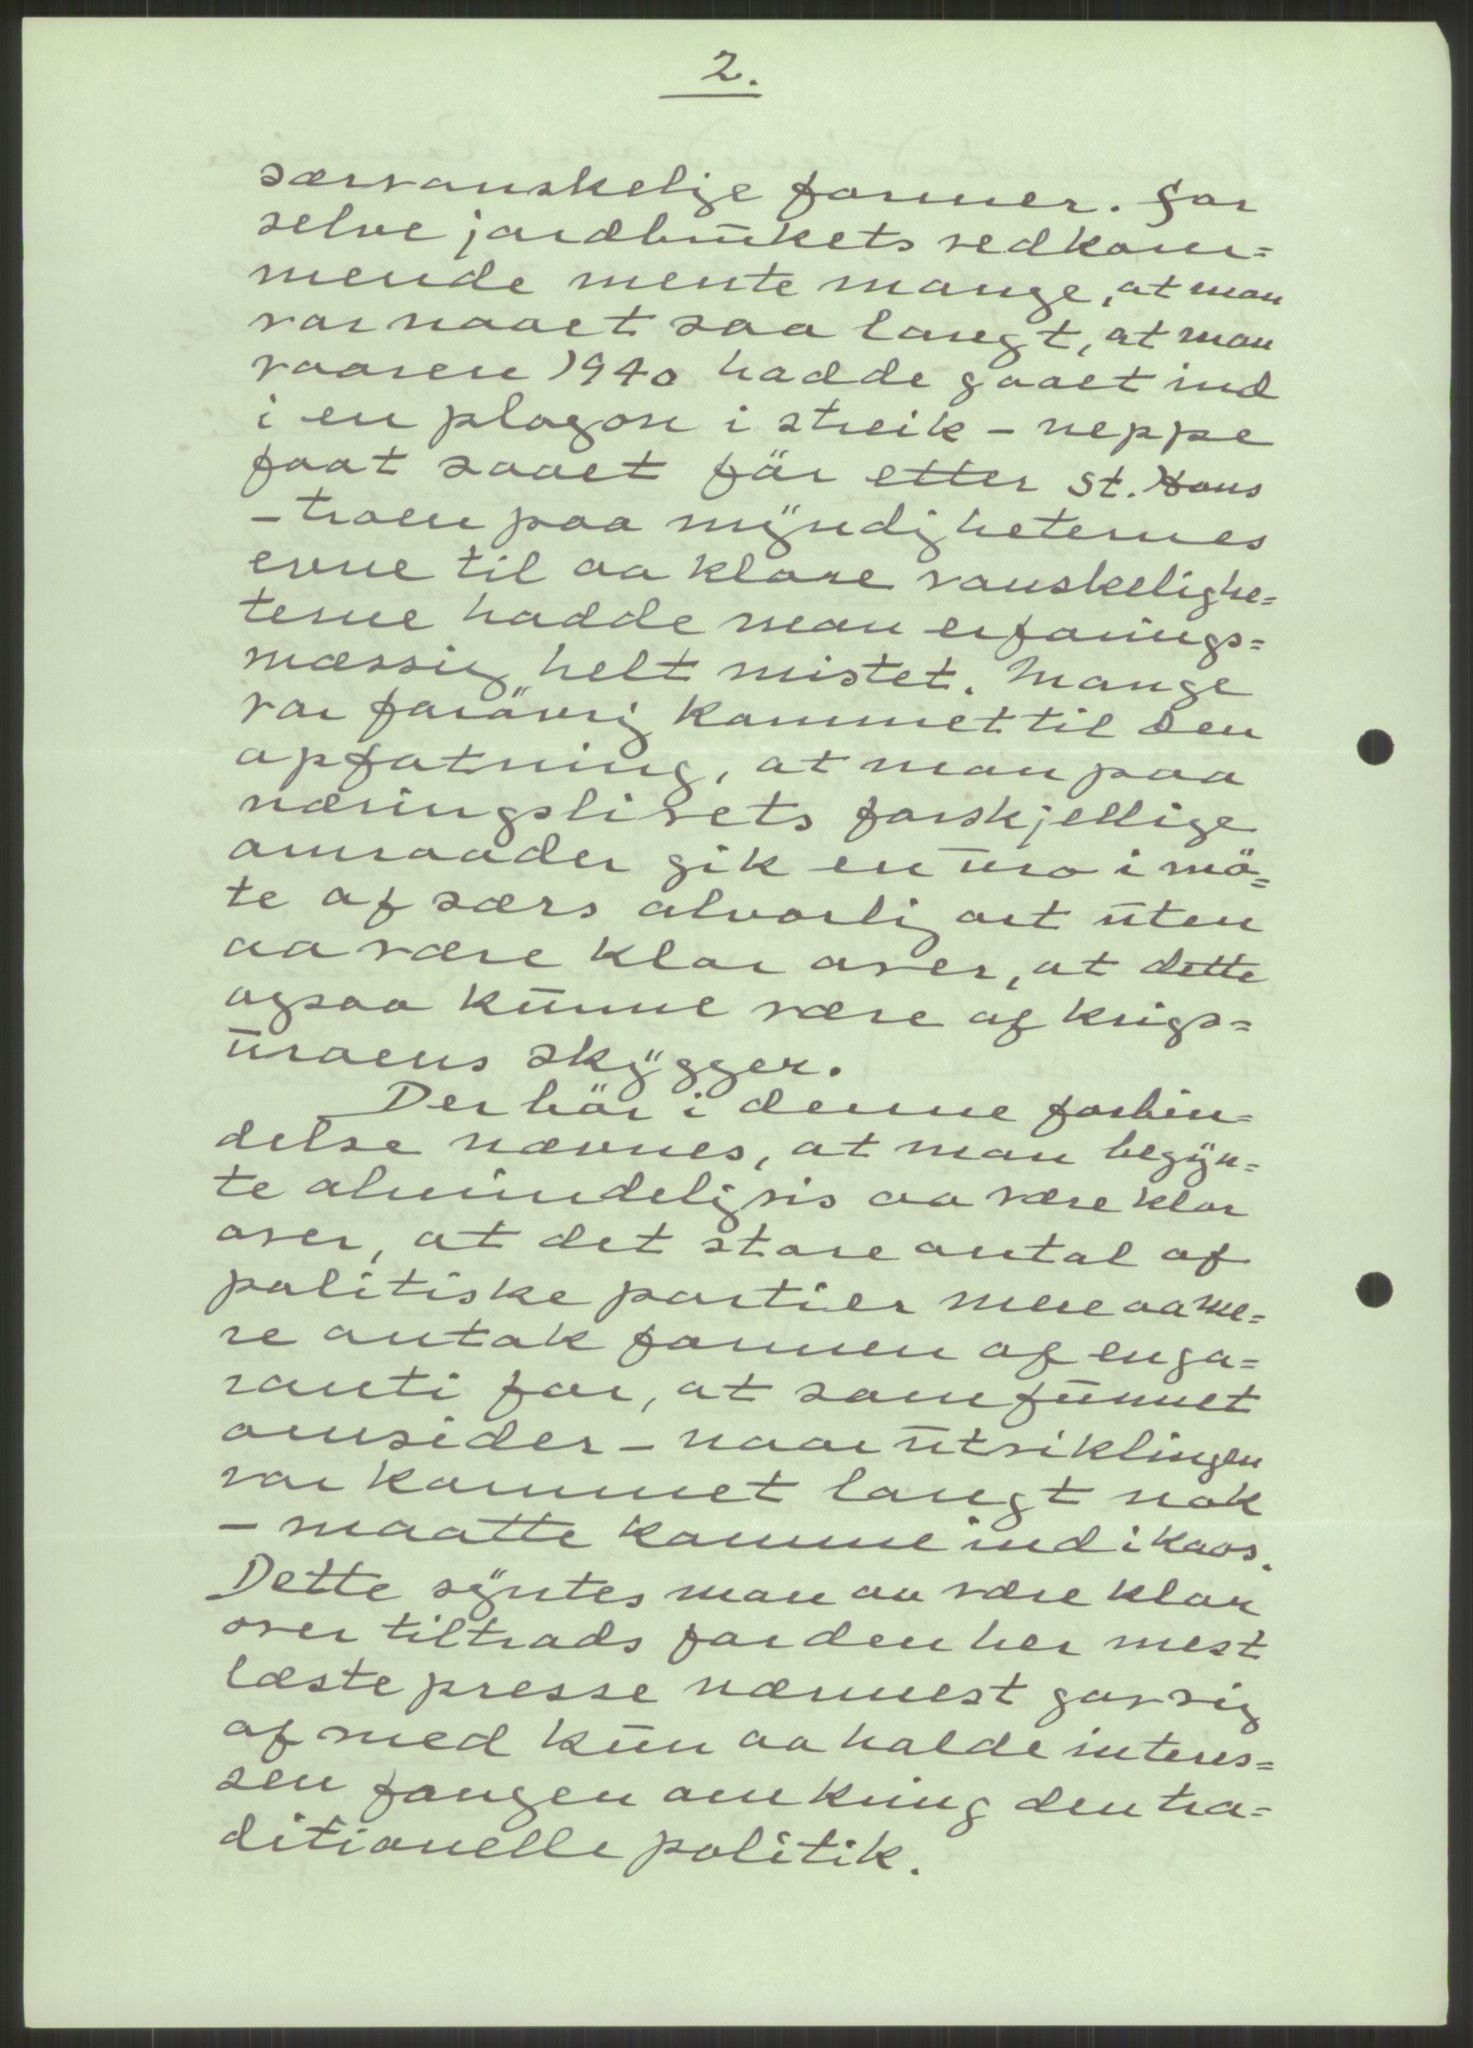 2.
særvanskelige former. For
selve jordbrukets vedkom=
mende mente mange, at man
var naaet saa langt, at man
vaaren 1940 hadde gaaet ind
i en plagon i streik - neppe
faat saaet før etter St. Hans
- troen paa myndigheternes
evne til aa klare vanskelighe=
terne hadde man erfarings=
mæssig helt mistet. Mange
var forøvrig kommet til den
opfatning, at man paa
næringslivets forskjellige
omraader gik en uro i mø=
te af særs alvorlig art uten
aa være klar over, at dette
ogsaa kunne være af krigs=
uroens skygger.
Der bør i denne forbin=
delse nævnes, at man begyn=
te almindeligvis aa være klar
over, at det store antal af
politiske partier mere aa me=
re antok formen af en ga=
ranti for, at samfunnet
omsider - naar utviklingen
var kommet langt nok
- maatte komme ind i kaos.
Dette syntes man aa være klar
over tiltrods for den her mest
læste presse nærmest gav sig
af med kun aa holde interes=
sen fangen omkring den tra=
ditionelle politik.